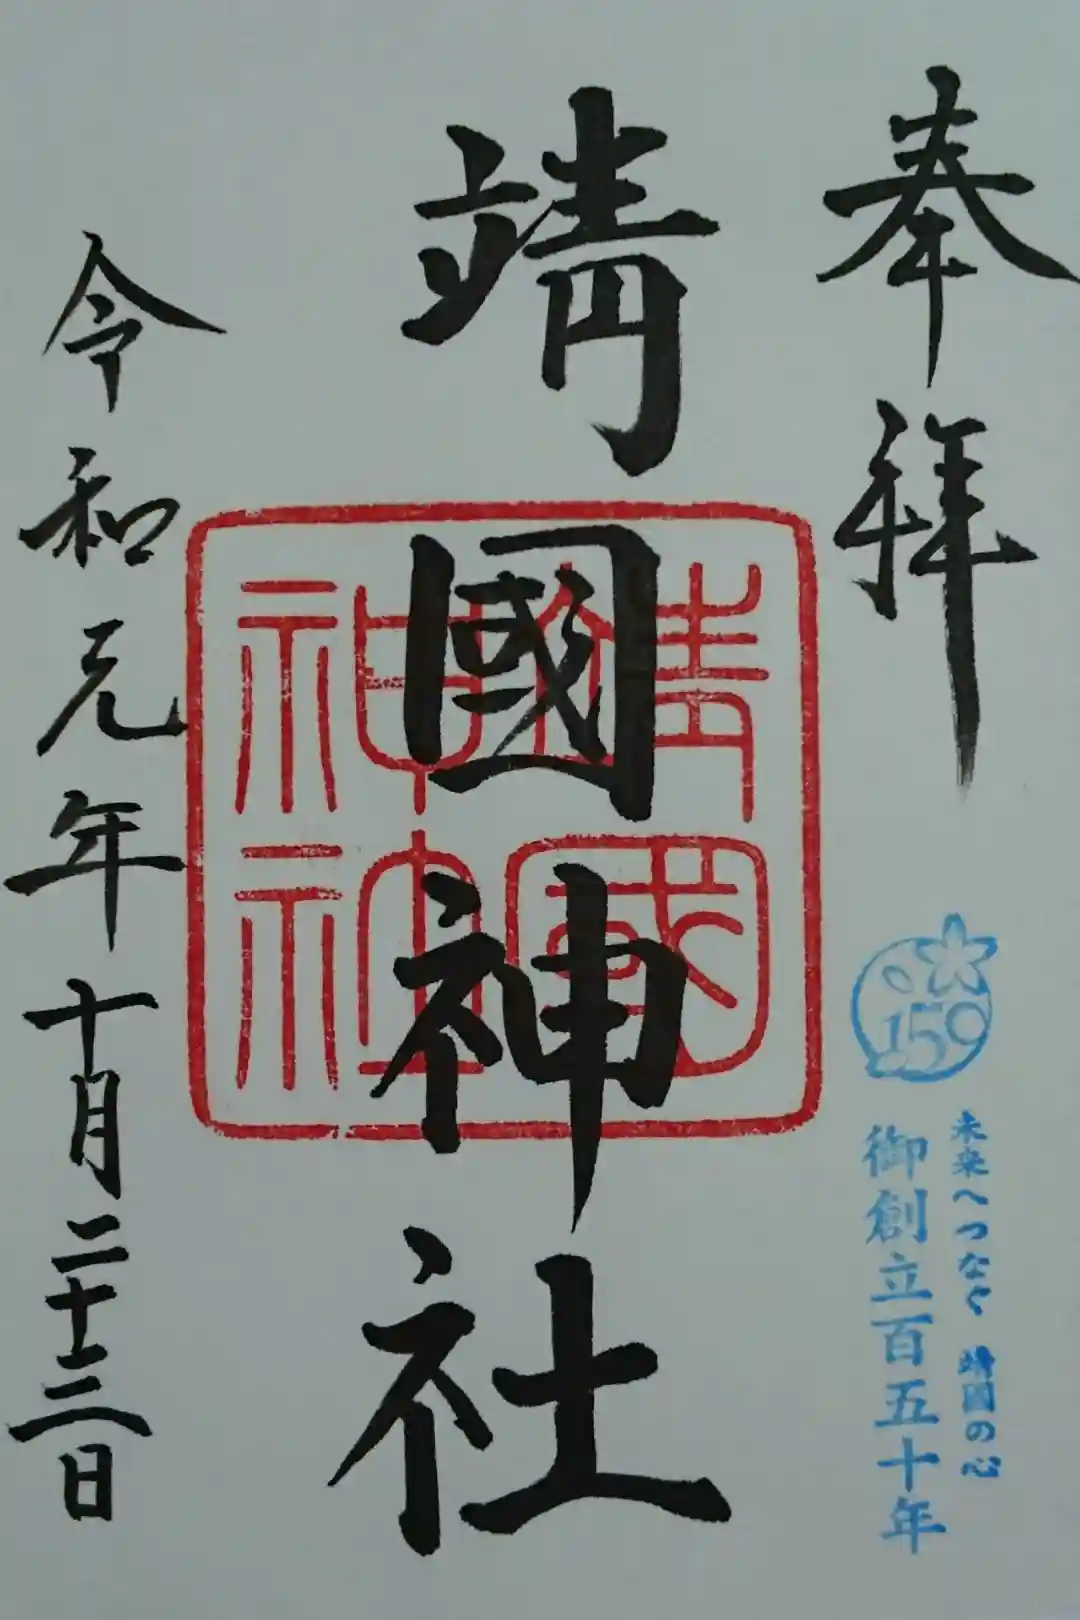 奉拝
150
未来へつなぐ 靖國の心
御創立百五十年
靖國神社
靖國神社
令和元年十月二十三日